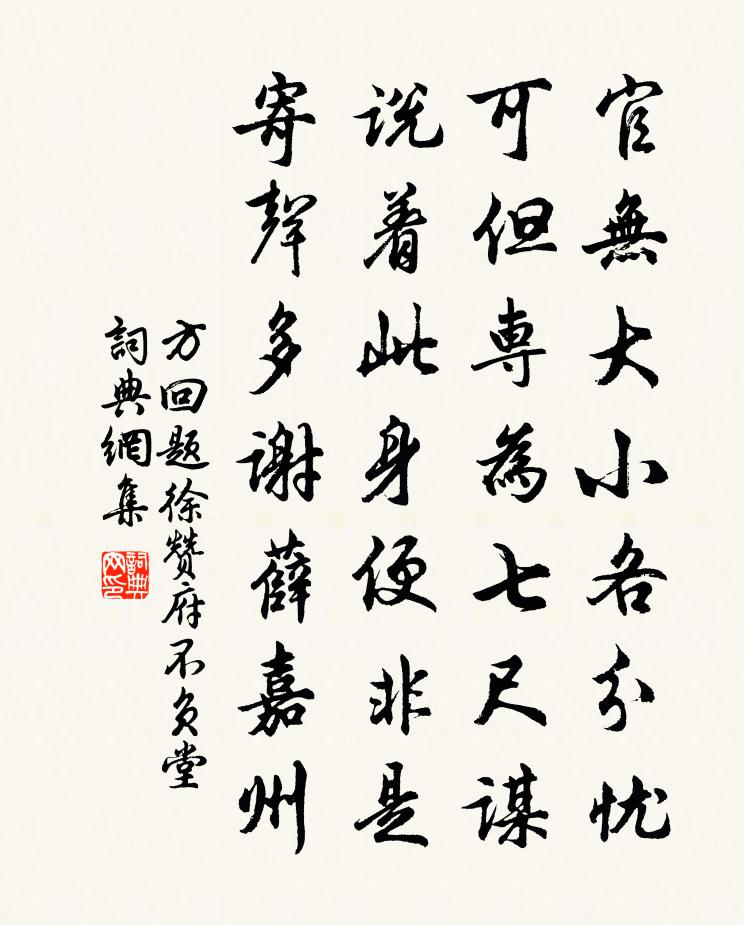 官無大小各分忧
可但専為七尺謀
说着此身便非是
寄聲多謝薛嘉州
方回题徐赞府不负堂
詞典網集
詞典網印